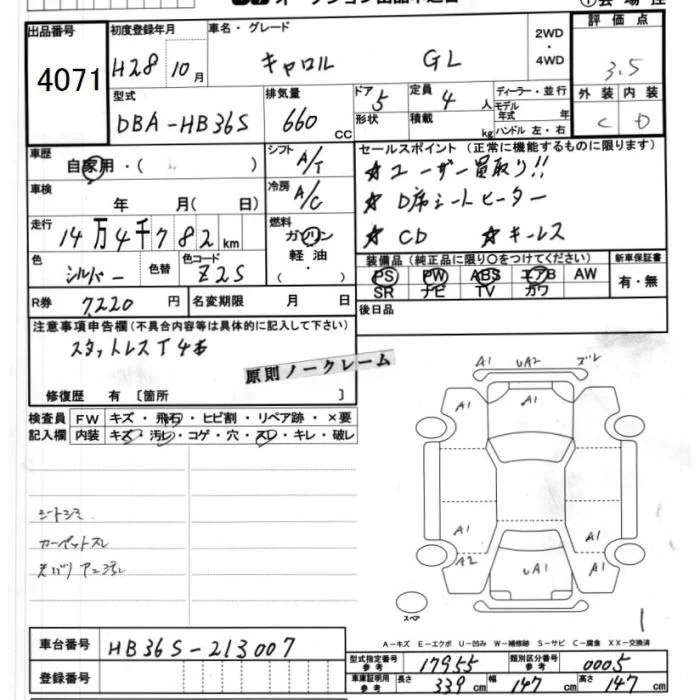 オークション出品申込書
出品番号 4071
初度登録年月 H28 10月
車名・グレード キャロル GL
2WD・4WD
評価点 3.5
外装 C 内装 D
型式 DBA-HB36S
排気量 660 CC
ドア 5 形状
定員 4 人 積載 kg
ディーラー・並行
モデル年式 年
ハンドル 左・右
車歴 自家用・( )
シフト A/T
車検 年 月( 日)
冷房 A/C
走行 14万4千782km
燃料 ガソリン 軽油 ・ ( )
色 シルバー 色替
色コード Z2S
R券 7,220 円
名変期限 月 日
セールスポイント(正常に機能するものに限ります)
☆ユーザー買取り!!
☆D席シートヒーター
☆CD ☆キーレス
装備品(純正品に限り○をつけてください)
PS PW ABS エアB AW
SR ナビ TV カワ
新車保証書 有・無
後日品
注意事項申告欄(不具合内容等は具体的に記入して下さい)
スタットレスT4本
原則ノークレーム
修復歴 有〔箇所 〕
検査員記入欄
FW キズ・飛石・ヒビ割・リペア跡・×要
内装 キズ・汚レ・コゲ・穴・スレ・キレ・破レ
シートシミ
カーペットスレ
A1 UA2 ズレ
A1 A1 A1
A1 A1
A2 UA1 A1
スペア
1
A-キズ E-エクボ U-凹み W-補修跡 S-サビ C-腐食 XX-交換済
車台番号 HB36S-213007
登録番号
型式指定番号 参考 17955
類別区分番号 参考 0005
車庫証明用 参考 長さ 339cm 幅 147cm 高さ 147cm